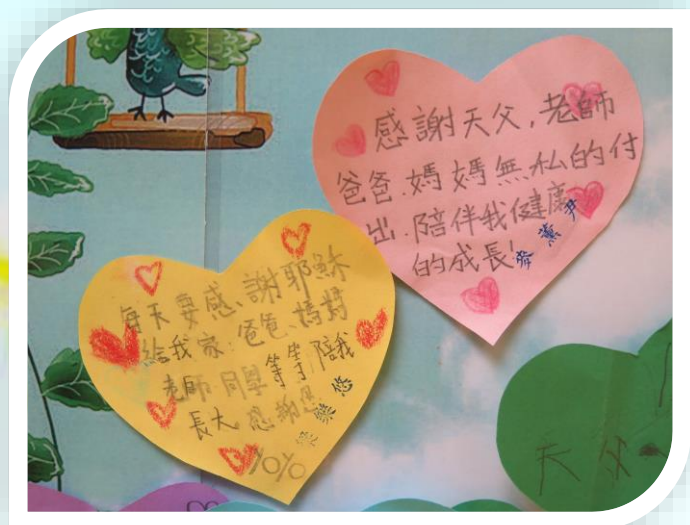 感謝天父,老師
爸爸.媽媽無私的付
出.陪伴我健康
的成長!
每天要感謝耶穌
給我家.爸爸、媽媽
老師.同學等等陪我
長大 感謝恩
yoyo
天父